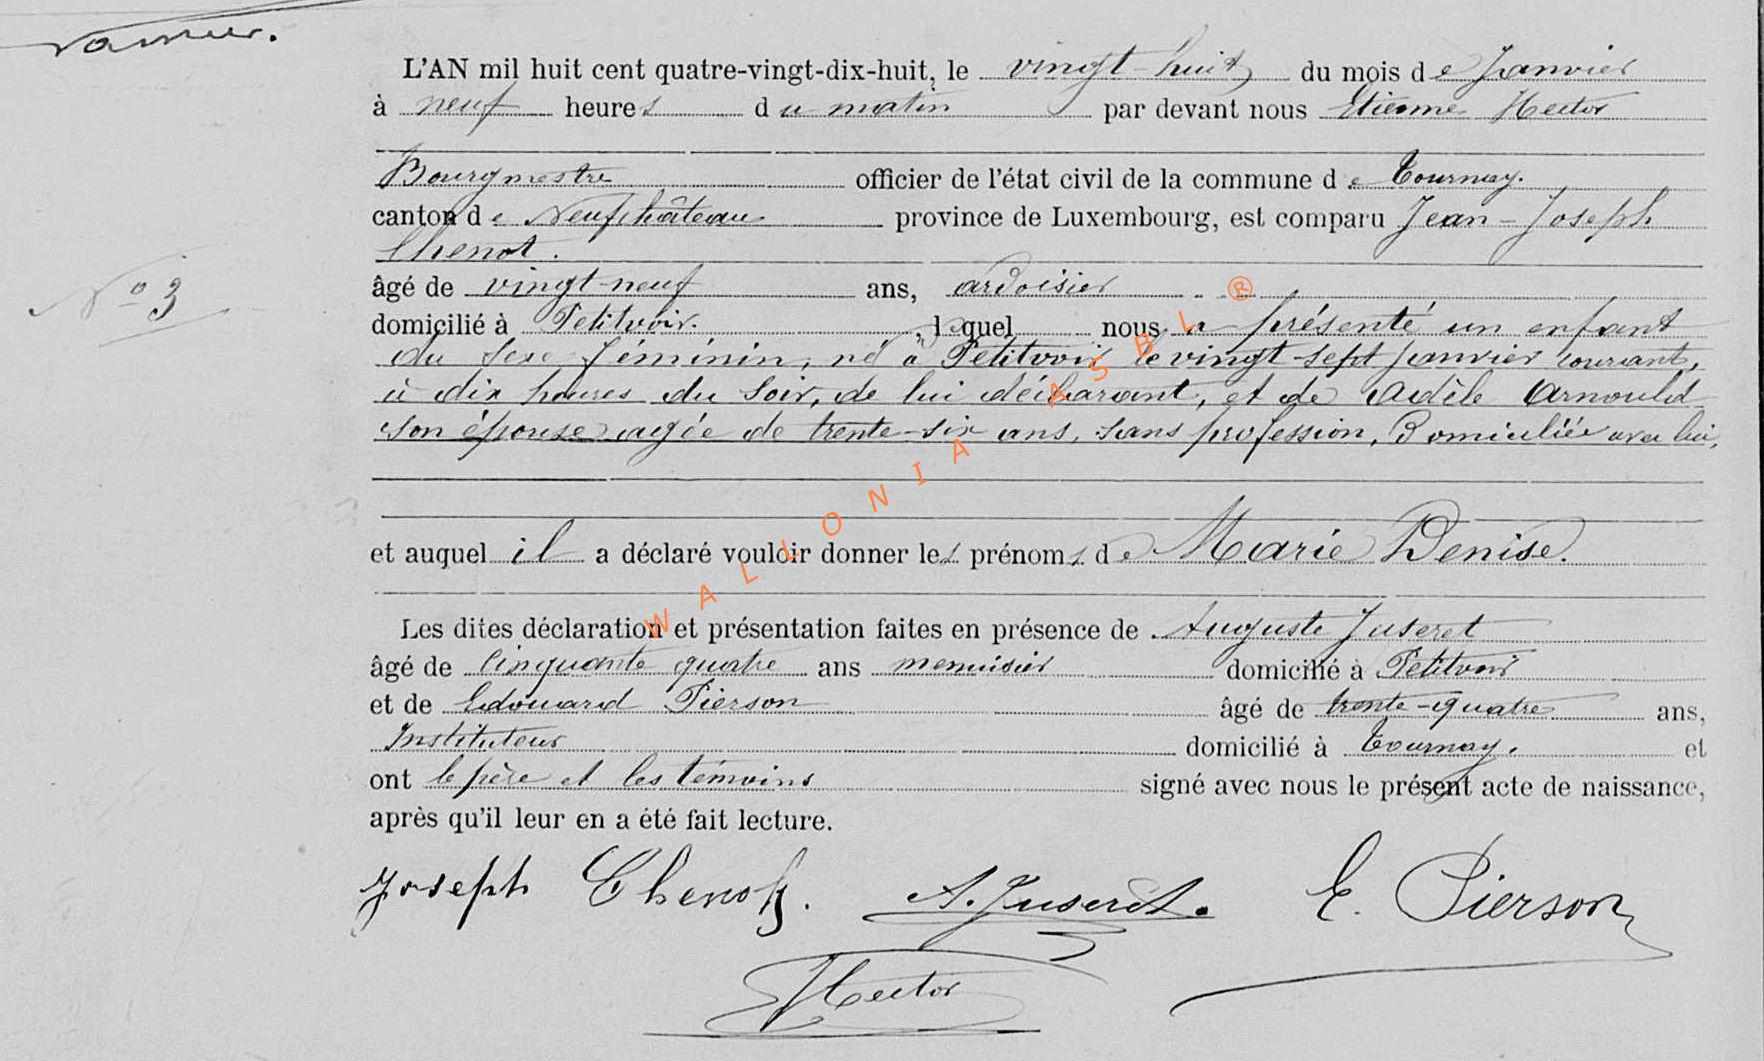 L'AN mil huit cent quatre-vingt-dix-huit, le vingt-huit du mois de Janvier
à neuf heures du matin par devant nous Etienne Hector
Bourgmestre officier de l'état civil de la commune de Tournay.
canton de Neufchâteau province de Luxembourg, est comparu Jean-Joseph
Chenot.
N° 3
âgé de vingt-neuf ans, ardoisier
domicilié à Petitvoir. , lequel nous a présenté un enfant
du sexe féminin, né à Petitvoir le vingt-sept janvier courant,
à dix heures du soir, de lui déclarant, et de Adèle Arnould
son épouse agée de trente-six ans, sans profession, Domiciliée avec lui,
et auquel il a déclaré vouloir donner les prénoms de Marie Denise.
Les dites déclaration et présentation faites en présence de Auguste Juseret
âgé de cinquante quatre ans menuisier domicilié à Petitvoir
et de Edouard Pierson âgé de trente-quatre ans,
Instituteur domicilié à Tournay. et
ont le père et les témoins signé avec nous le présent acte de naissance,
après qu'il leur en a été fait lecture.
Joseph Chenot. A. Juseret. E. Pierson
Hector
WALLONIA ASBL ®